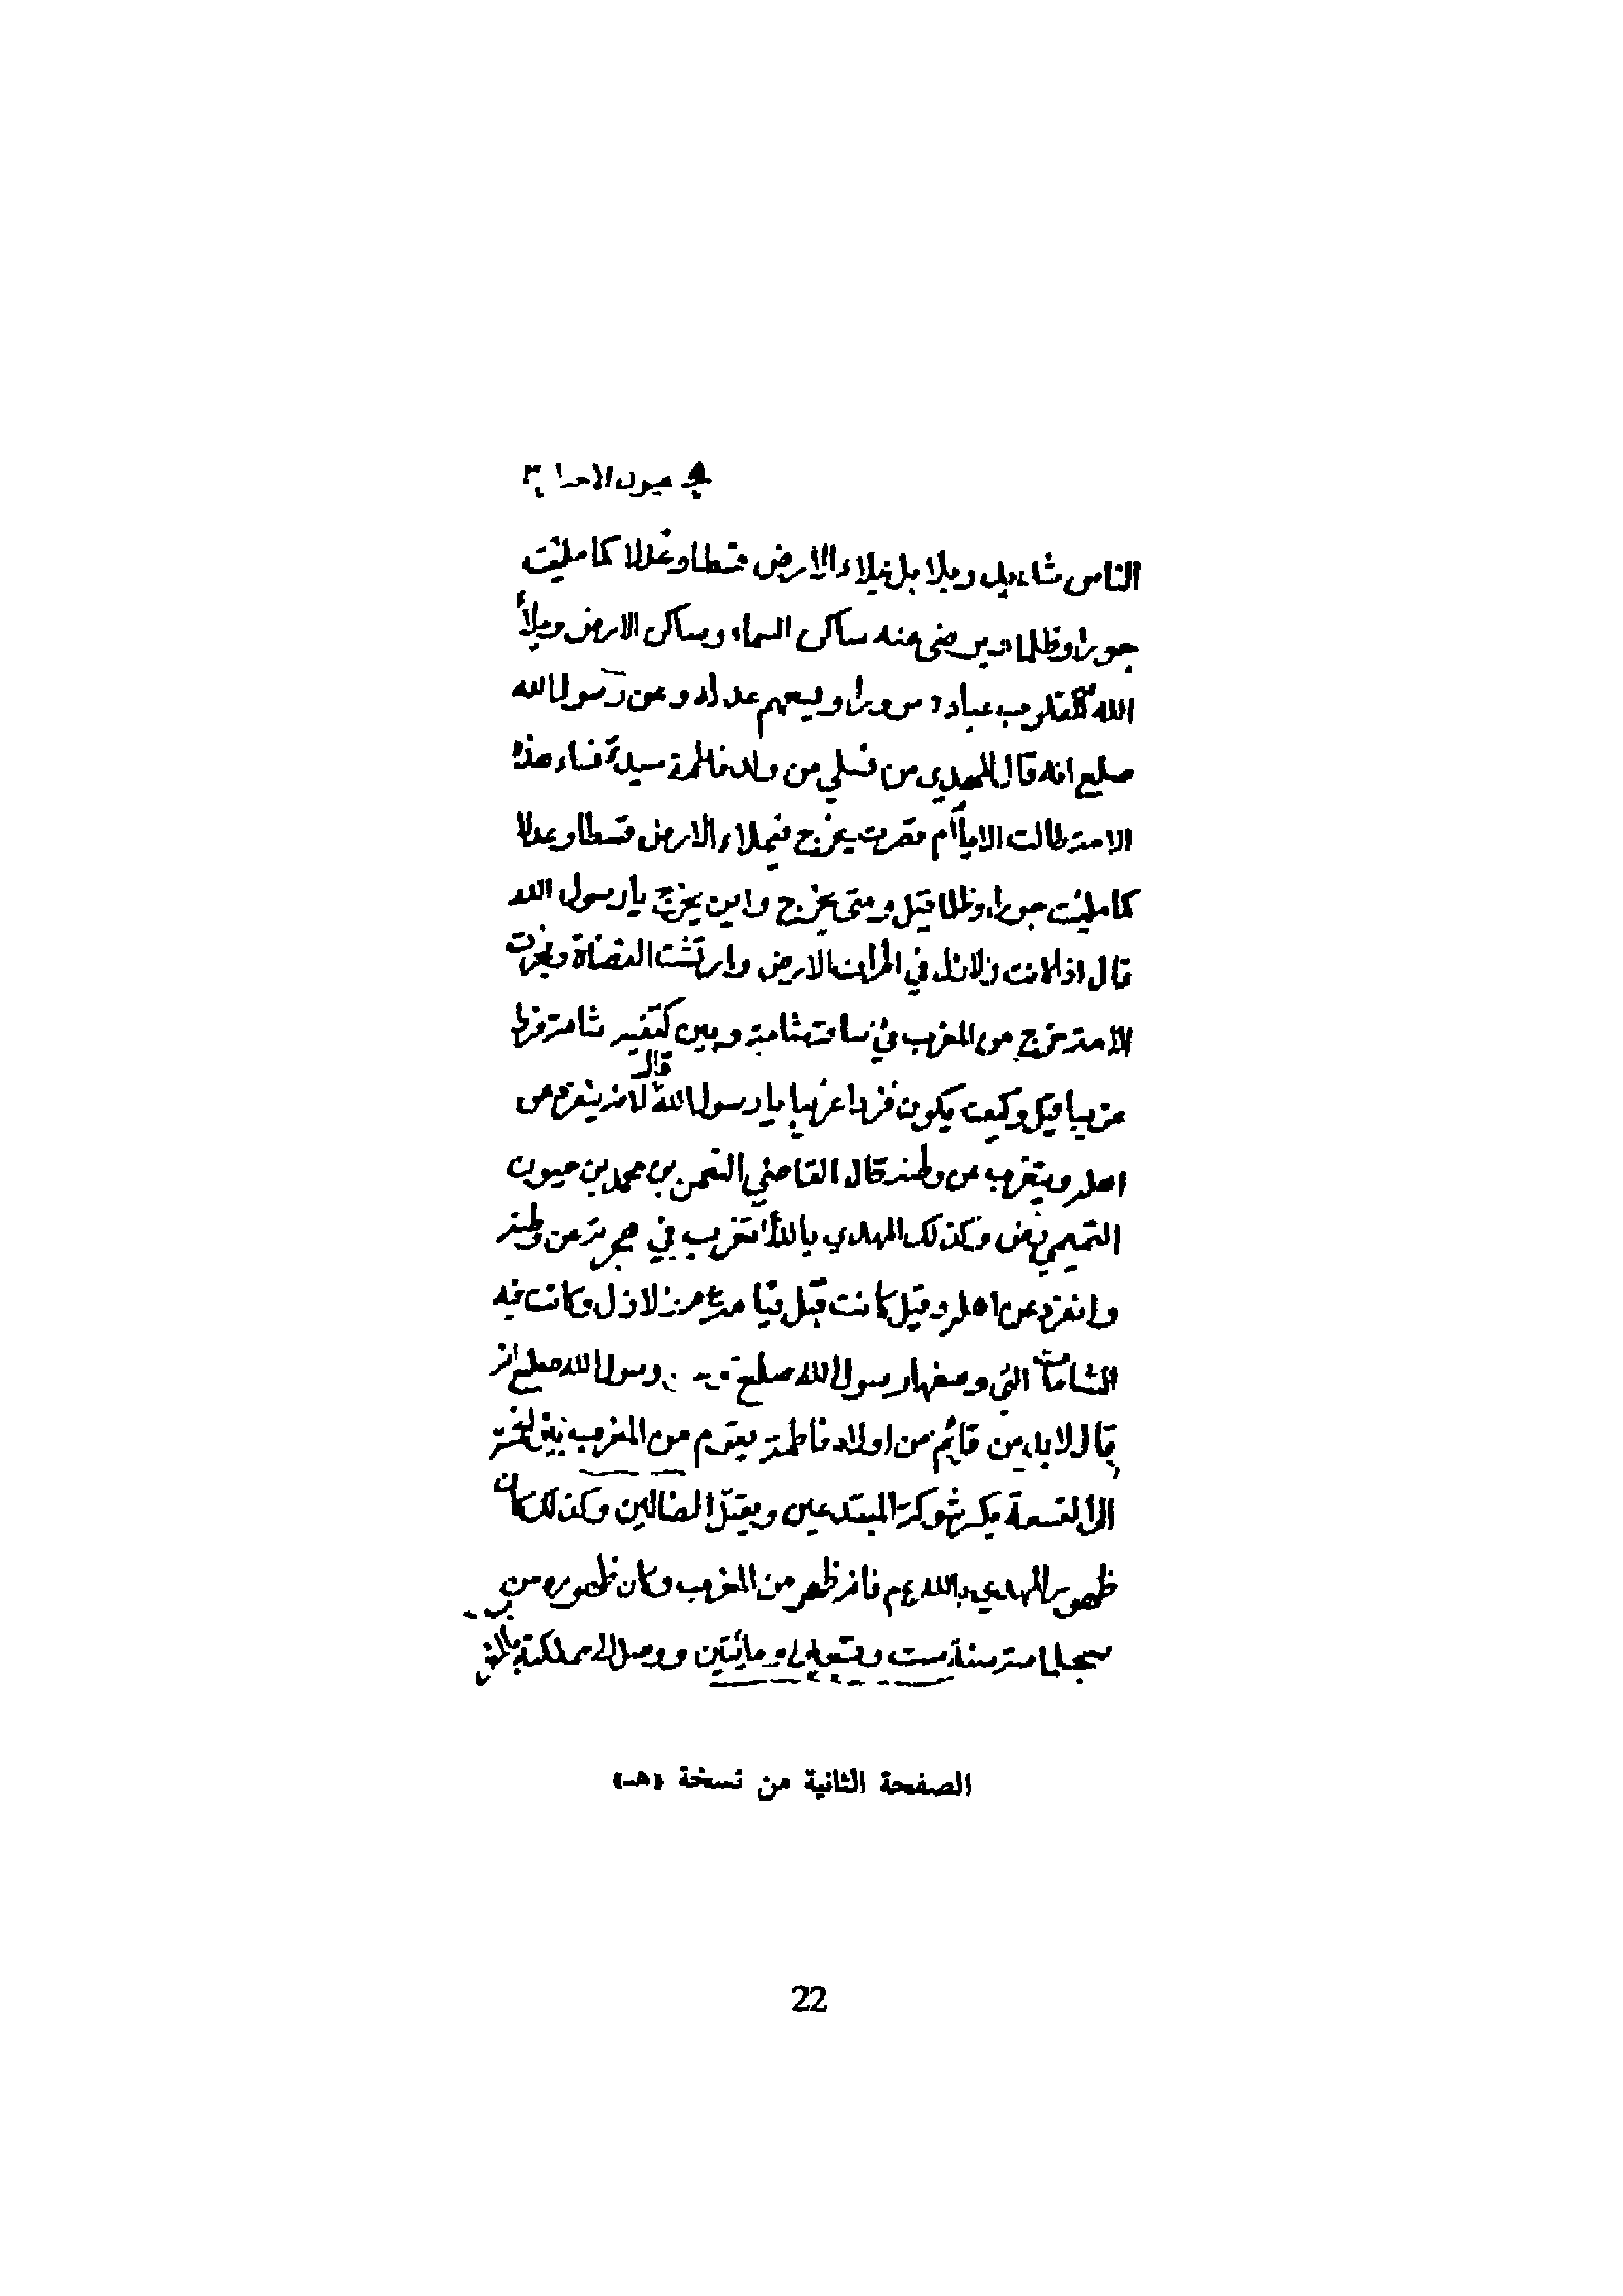 عيون الاخبار ٣
الناس شديد وبلا بل يملاء الارض قسطا وعدلا كما ملئت
جورا وظلما يرضى عنه ساكن السماء وساكن الارض ويملأ
الله قلوب عباده سرورا ويسعهم عدله وعن رسول الله
صلع انه قال المهدي من نسلي من ولد فاطمة سيدة نساء هذه
الامة طالت الايام قصرت يخرج فيملاء الارض قسطا وعدلا
كما ملئت جورا وظلما قيل ومتى يخرج واين يخرج يا رسول الله
قال اذا كانت زلازل في اطراف الارض وارتشت القضاة وفجرت
الامة خرج من المغرب في ساقه شامة وبين كتفيه شامة فردا
غريبا قيل وكيف يكون فردا غريبا يا رسول الله قال لانه ينفرد من
اهله ويتغرب عن وطنه قال القاضي النعمن بن محمد بن حيون
التميمي رض وكذلك المهدي بالله تغرب في هجرته عن وطنه
وانفرد عن اهله وقيل كانت قبل قيامه زلازل وكانت فيه
الشامات التي وصفها رسول الله صلع رسول الله صلع انه
قال لا بد من قائم من اولاد فاطمة يقوم من المغرب بين الخمسة
الى التسعة يكسر شوكة المبتدعين ويقتل الضالين وكذلك كان
ظهور المهدي بالله ع م فانه ظهر من المغرب وكان ظهوره من
سجلماسة سنة ست وتسعين ومائتين ووصل الى مملكته
الصفحة الثانية من نسخة «هـ»
22